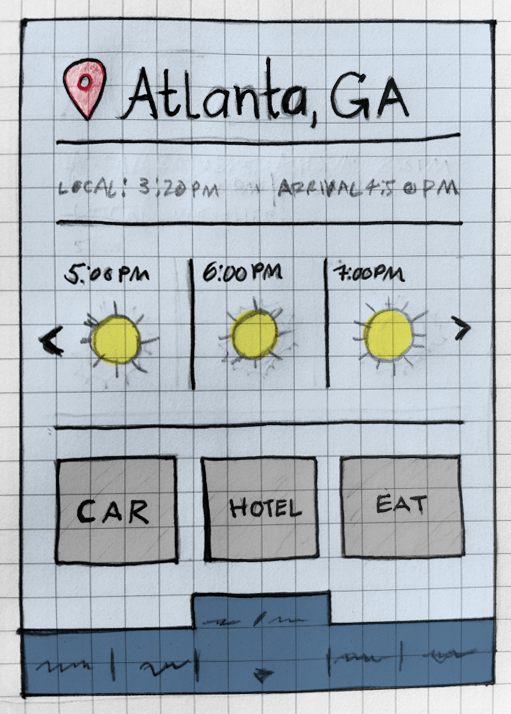 Atlanta, GA
LOCAL: 3:20PM ARRIVAL 4:50PM
5:00PM 6:00PM 7:00PM
< >
CAR HOTEL EAT